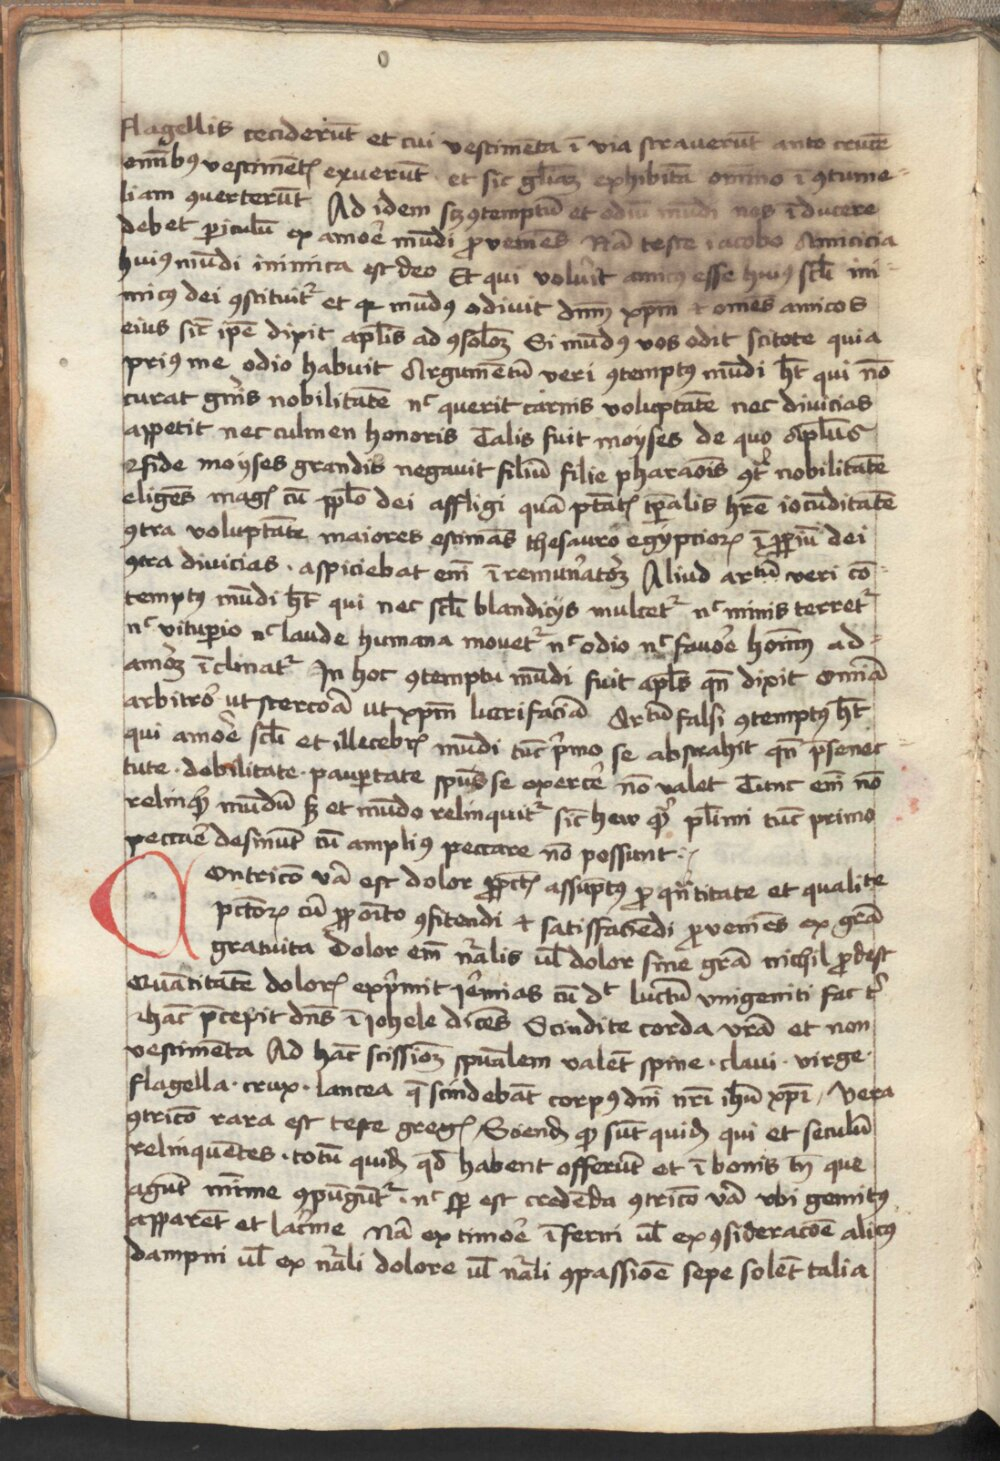 flagellis ceciderūt et cui vestimēta ī via straverūt anto crucē
om̄ībꝯ vestimētꝭ exverūt et sic gl̄iaꝫ exhibitā om̄ino ī ꝯtume-
liam ꝯverterūt Ad idem scꝫ ꝯtemptū et odiū mūdi nos īducere
debet ꝑiculū ex amoꝛe mūdi ꝓveniēs Nā teste iacobo Amicicia
huiꝯ mūdi inimica est deo Et qui volu̾it amicꝯ esse huiꝯ scl̄i ini-
micꝯ dei ꝯstituit᷑ et qꝛ mūdꝯ odivit dn̄m xp̄m ⁊ om̄es amicos
eius sic̄ ip̄e dixit apl̄is ad ꝯsolōꝫ Si mūdꝯ vos odit scitote quia
priꝯ me odio habuit Argumētū veri ꝯtemptꝯ mūdi hꝫ qui nō
curat gn̄is nobilitatē nᶜ querit carnis voluptatē nec divicias
appetit nec culmen honoris Talis fuit moyses de quo apl̄us
fide moyses grandis negavit filiū filie pharaōis ꝯtᷓ nobilitatē
eligēs magꝭ cū ppl̄o dei affligi quā ptātꝭ tp̄alis hr̄e iocūditatē
ꝯtra voluptatē maiores estimās thesauro egyptioꝝ īpꝓpiū dei
ꝯtra divicias · aspiciebat em̄ ī remun̾atōꝫ Aliud artū veri cō-
temptꝯ mūdi hꝫ qui nec scl̄i blandicijs mulcet᷑ nᶜ minis terret᷑
nᶜ vituꝑio nᶜ laude humana movet᷑ nᶜ odio nᶜ favoꝛe hoīm ad
amoꝛē īclinat᷑ In hoc ꝯtemptu mūdi fuit apl̄s qn̄ dixit Om̄ia
arbitroꝛ ut stercoꝛa ut xp̄m lucrifaciā Artū falsi ꝯtemptꝯ hꝫ
qui amoꝛe scl̄i et illecebrꝭ mūdi tūc p̾mo se abstrahit qn̄ p̄ senec-
tute · debilitate · pauꝑtate ip̄is se exercē nō valet Tunc em̄ nō
relinqꝰ mūdū sꝫ et mūdo relinquit᷑ sic̄ hew qꝛ pl̄imi tūc primo
peccaꝛe desinūt cū ampliꝯ peccare nō possunt ·
Contricō vᷓa est dolor ꝓ pctꝭ assūptꝯ ꝓ qn̄titate et qualitate
pctoꝝ cū ꝓpoīto ꝯfitendi ⁊ satisfaciēdi ꝓveniēs ex grā
gratuita Dolor em̄ nᷓalis ul̄ dolor sine grā nichil ꝓdest
Quātitatē dolorꝭ exp̾mit ieremias cū dᵗ luctū vnigeniti fac tᵢ
⁊ hāc p̄cepit dn̄s ī iohele dicēs Scindite corda vr̄a et non
vestimēta Ad hāc scissionē spūalem valēt spine · clavi · virge ·
flagella · crux · lancea q̄ scindebāt corpꝯ dn̄i nr̄i ihū xp̄i / Vera
ꝯtricō rara est teste gregꝭ / Sciendꝫ qꝫ sūt quidꝫ qui et seculū
relinquētes · totū quidꝫ qd̄ habent offerūt et ī bonis tn̄ que
agūt mīme ꝯpūgūt᷑ · nᶜ sꝑ est credēda ꝯtricō vᷓa vbi gemitꝯ
apparēt et lac̾me Nā ex timoꝛe īferni ul̄ ex ꝯsideracōe alicꝯ
dampni ul̄ ex nᷓali dolore ul̄ nᷓali ꝯpassiōe sepe solēt talia